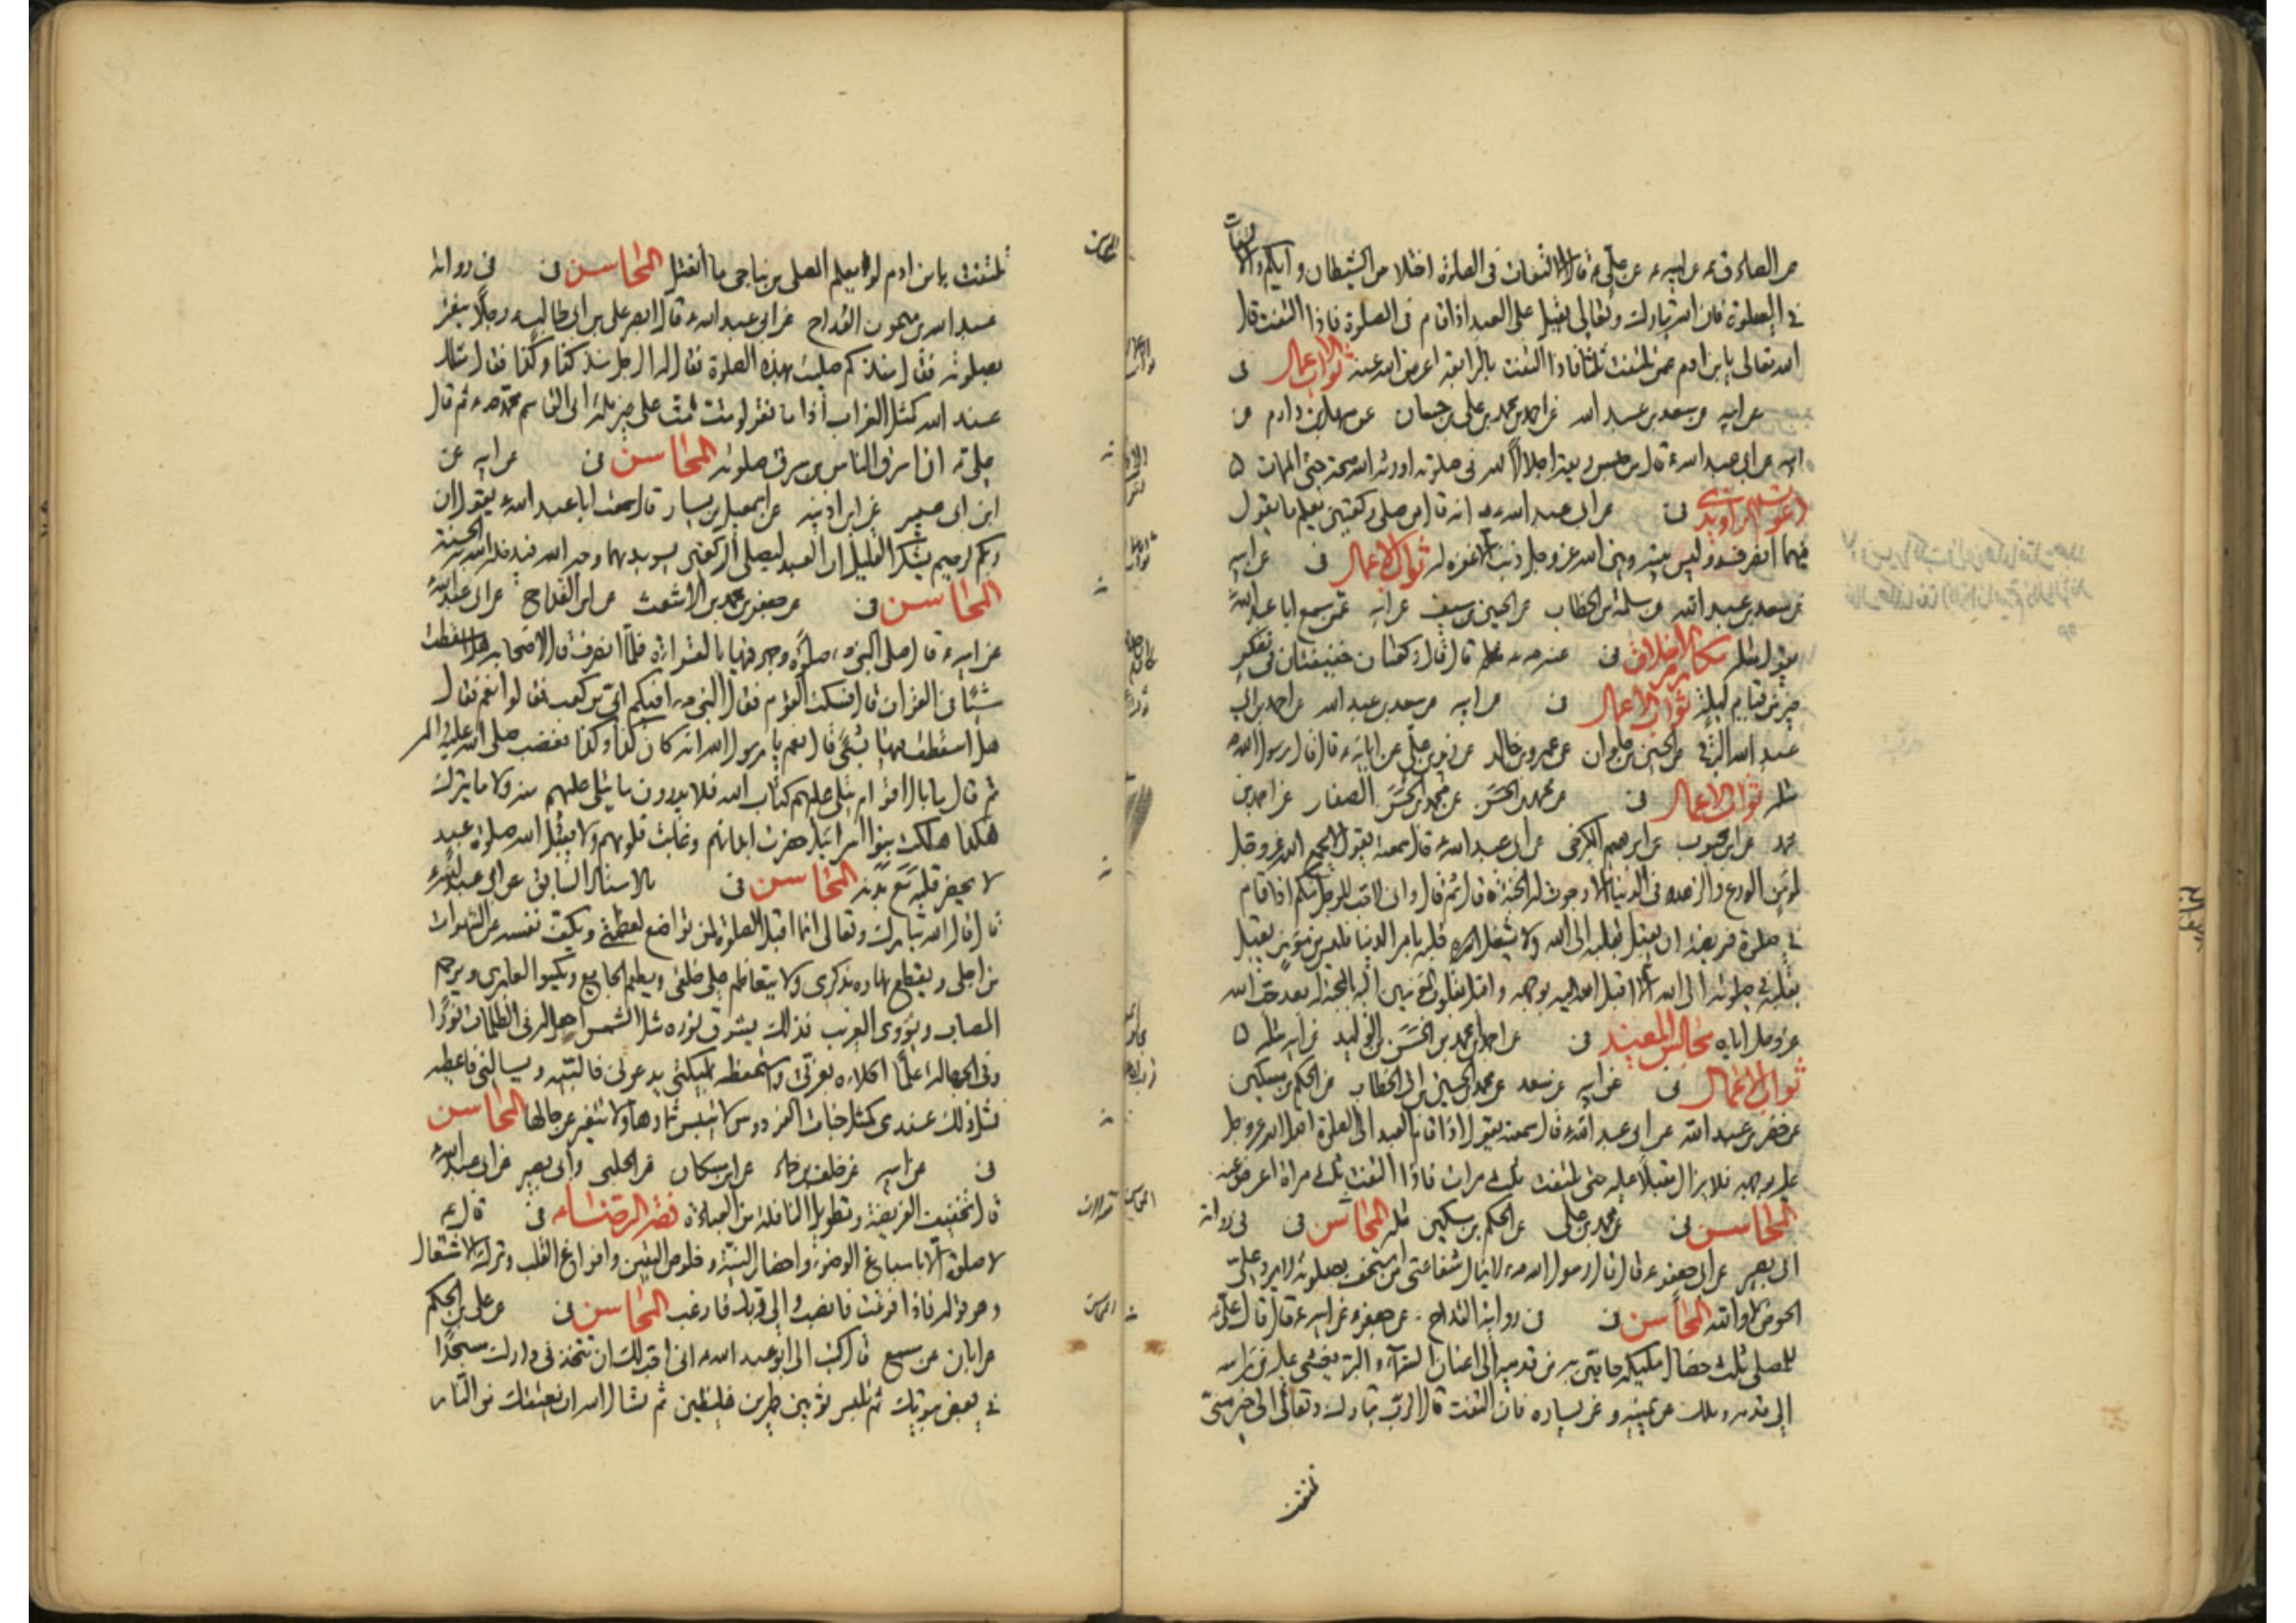 عن الصادق ع عن ابيه ع عن علي ع قال الالتفات في الصلوة اختلاس من الشيطان واياكم والالتفات
في الصلوة فان الله تبارك وتعالى يقبل على العبد اذا قام في الصلوة فاذا التفت قال
الله تعالى يا بن ادم عمن تلتفت ثلثا فاذا التفت بالرابعة اعرض الله عنه ثواب الاعمال في
عن ابيه عن سعد بن عبد الله عن احمد بن محمد بن علي بن حسان عن سهل بن دارم عن
ابيه عن ابي عبد الله ع قال من حبس ريقه اجلالا لله في صلوته اورثه الله صحة حتى الممات
دعوات الراوندي في عن ابي عبد الله ع انه قال من صلى ركعتين يعلم ما يقول
فيهما انصرف وليس بينه وبين الله عز وجل ذنب الا غفره له ثواب الاعمال في عن ابيه
عن سعد بن عبد الله عن سلمة بن الخطاب عن الحسين بن سيف عن ابيه عمن سمع ابا عبد الله ع
يقول مثله مكارم الاخلاق في عنه قال قال ركعتان خفيفتان في تفكر
خير من قيام ليلة ثواب الاعمال في عن ابيه عن سعد بن عبد الله عن احمد بن ابي
عبد الله البرقي عن الحسين بن علوان عن عمرو بن خالد عن زيد بن علي عن ابائه ع قال قال رسول الله ص
مثله ثواب الاعمال في عن محمد بن الحسن عن محمد بن الحسن الصفار عن احمد بن
محمد عن ابن محبوب عن ابرهيم الكرخي عن ابي عبد الله ع قال سمعته يقول لا يجمع الله عز وجل
لمؤمن الورع والزهد في الدنيا الا رجوت له الجنة قال ثم قال واني لاحب للرجل منكم اذا قام
في صلوة فريضة ان يقبل بقلبه الى الله ولا يشغل قلبه بامر الدنيا فليس من مؤمن يقبل
بقلبه في صلوته الى الله الا اقبل الله اليه بوجهه واقبل بقلوب المؤمنين اليه بالمحبة له بعد حب الله
عز وجل اياه مجالس المفيد في عن احمد بن محمد بن الحسن بن الوليد عن ابيه مثله
ثواب الاعمال في عن ابيه عن سعد عن محمد بن الحسين بن ابي الخطاب عن الحكم بن مسكين
عن خضر بن عبد الله عن ابي عبد الله ع قال سمعته يقول اذا قام العبد الى الصلوة اقبل الله عز وجل
عليه بوجهه فلا يزال مقبلا عليه حتى يلتفت ثلث مرات فاذا التفت ثلث مرات اعرض عنه
المحاسن في عن محمد بن علي عن الحكم بن مسكين مثله المحاسن في في رواية
ابي بصير عن ابي جعفر ع قال قال رسول الله ص لا ينال شفاعتي من استخف بصلوته لا يرد علي
الحوض لا والله المحاسن في في رواية القداح عن جعفر ع عن ابيه ع قال قال علي ع
للمصلي ثلث خصال ملئكة حافين به من قدميه الى اعنان السماء والبر يغشى عليه من راسه
الى قدميه وملك عن يمينه وعن يساره فان التفت قال الرب تبارك وتعالى الى خير مني
تلتفت
تلتفت يا بن ادم لو يعلم المصلي من يناجي ما انفتل المحاسن في في رواية
عبد الله بن ميمون القداح عن ابي عبد الله ع قال ابصر علي بن ابي طالب ع رجلا ينقر
بصلوته فقال منذ كم صليت بهذه الصلوة فقال له الرجل منذ كذا وكذا فقال مثلك
عند الله كمثل الغراب اذا ما نقر لو مت مت على غير ملة ابي القاسم محمد ص ثم قال
علي ع ان اسرق الناس من سرق صلوته المحاسن في عن ابيه عن
ابن ابي عمير عن ابن اذينه عن اسمعيل بن يسار قال سمعت ابا عبد الله ع يقول ان
ربكم لرحيم يشكر القليل ان العبد ليصلي الركعتين يريد بهما وجه الله فيدخله الله به الجنة
المحاسن في عن جعفر بن محمد بن الاشعث عن ابن القداح عن ابي عبد الله ع
عن ابيه ع قال صلى النبي ص صلوة وجهر فيها بالقراءة فلما انصرف قال لاصحابه هل اسقطت
شيئا في القران قال فسكت القوم فقال النبي ص افيكم ابي بن كعب فقالوا نعم فقال
هل اسقطت فيها شيئا قال نعم يا رسول الله انه كان كذا وكذا فغضب صلى الله عليه واله
ثم قال ما بال اقوام يتلى عليهم كتاب الله فلا يدرون ما يتلى عليهم منه ولا ما يترك
هكذا هلكت بنوا اسرائيل حضرت ابدانهم وغابت قلوبهم ولا يقبل الله صلوة عبد
لا يحضر قلبه مع بدنه المحاسن في بالاسناد السابق عن ابي عبد الله ع
قال قال الله تبارك وتعالى انما اقبل الصلوة لمن تواضع لعظمتي ويكف نفسه عن الشهوات
من اجلي ويقطع نهاره بذكري ولا يتعاظم على خلقي ويطعم الجايع ويكسوا العاري ويرحم
المصاب ويؤوي الغريب فذلك يشرق نوره مثل الشمس اجعل له في الظلمات نورا
وفي الجهالة علما اكلاءه بعزتي واستحفظه ملئكتي يدعوني فالبيه ويسالني فاعطيه
فمثل ذلك عندي كمثل جنات الفردوس لا تيبس ثمارها ولا تتغير عن حالها المحاسن
في عن ابيه عن خلف بن حماد عن ابن مسكان عن الحلبي وابي بصير عن ابي عبد الله ع
قال تخفيف الفريضة وتطويل النافلة من العبادة فقه الرضا ع في قال ع
لا صلوة الا باسباغ الوضوء واحضار النية وخلوص اليقين وافراغ القلب وترك الاشتغال
وهو قوله فاذا فرغت فانصب والى ربك فارغب المحاسن في عن علي بن الحكم
عن ابان عن مسمع قال كتب الي ابو عبد الله ع اني احب لك ان تتخذ في دارك مسجدا
في بعض بيوتك ثم تلبس ثوبين طمرين غليظين ثم تسال الله ان يعتقك من النار